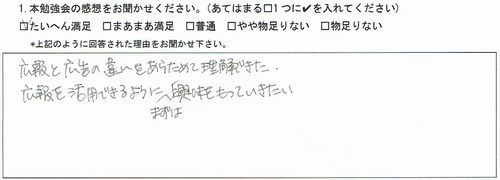 1. 本勉強会の感想をお聞かせください。(あてはまる□1つに✔を入れてください)
☑たいへん満足 □まあまあ満足 □普通 □やや物足りない □物足りない
*上記のように回答された理由をお聞かせ下さい。
広報と広告の違いをあらためて理解できた.
広報を活用できるように、興味をもっていきたい
まずは